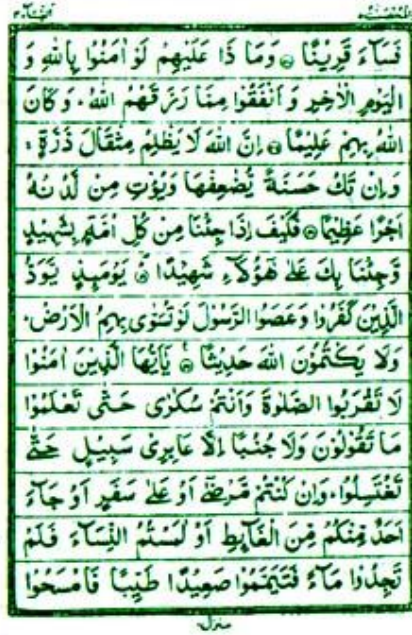 والمحصنت ٥
النسآء ٤
فَسَآءَ قَرِيْنًا ۝ وَمَا ذَا عَلَيْهِمْ لَوْ اٰمَنُوْا بِاللهِ وَ
الْيَوْمِ الْاٰخِرِ وَ اَنْفَقُوْا مِمَّا رَزَقَهُمُ اللهُ ؕ وَ كَانَ
اللهُ بِهِمْ عَلِيْمًا ۝ اِنَّ اللهَ لَا يَظْلِمُ مِثْقَالَ ذَرَّةٍ ۚ
وَاِنْ تَكُ حَسَنَةً يُّضٰعِفْهَا وَيُؤْتِ مِنْ لَّدُنْهُ
اَجْرًا عَظِيْمًا ۝ فَكَيْفَ اِذَا جِئْنَا مِنْ كُلِّ اُمَّةٍۭ بِشَهِيْدٍ
وَّجِئْنَا بِكَ عَلٰى هٰٓؤُلَآءِ شَهِيْدًا ۝ يَوْمَئِذٍ يَّوَدُّ
الَّذِيْنَ كَفَرُوْا وَعَصَوُا الرَّسُوْلَ لَوْ تُسَوّٰى بِهِمُ الْاَرْضُ ؕ
وَلَا يَكْتُمُوْنَ اللهَ حَدِيْثًا ۝ يٰٓاَيُّهَا الَّذِيْنَ اٰمَنُوْا
لَا تَقْرَبُوا الصَّلٰوةَ وَاَنْتُمْ سُكٰرٰى حَتّٰى تَعْلَمُوْا
مَا تَقُوْلُوْنَ وَلَا جُنُبًا اِلَّا عَابِرِيْ سَبِيْلٍ حَتّٰى
تَغْتَسِلُوْا ؕ وَاِنْ كُنْتُمْ مَّرْضٰٓى اَوْ عَلٰى سَفَرٍ اَوْ جَآءَ
اَحَدٌ مِّنْكُمْ مِّنَ الْغَآئِطِ اَوْ لٰمَسْتُمُ النِّسَآءَ فَلَمْ
تَجِدُوْا مَآءً فَتَيَمَّمُوْا صَعِيْدًا طَيِّبًا فَامْسَحُوْا
منزل